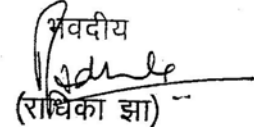 भवदीय
(राधिका झा)